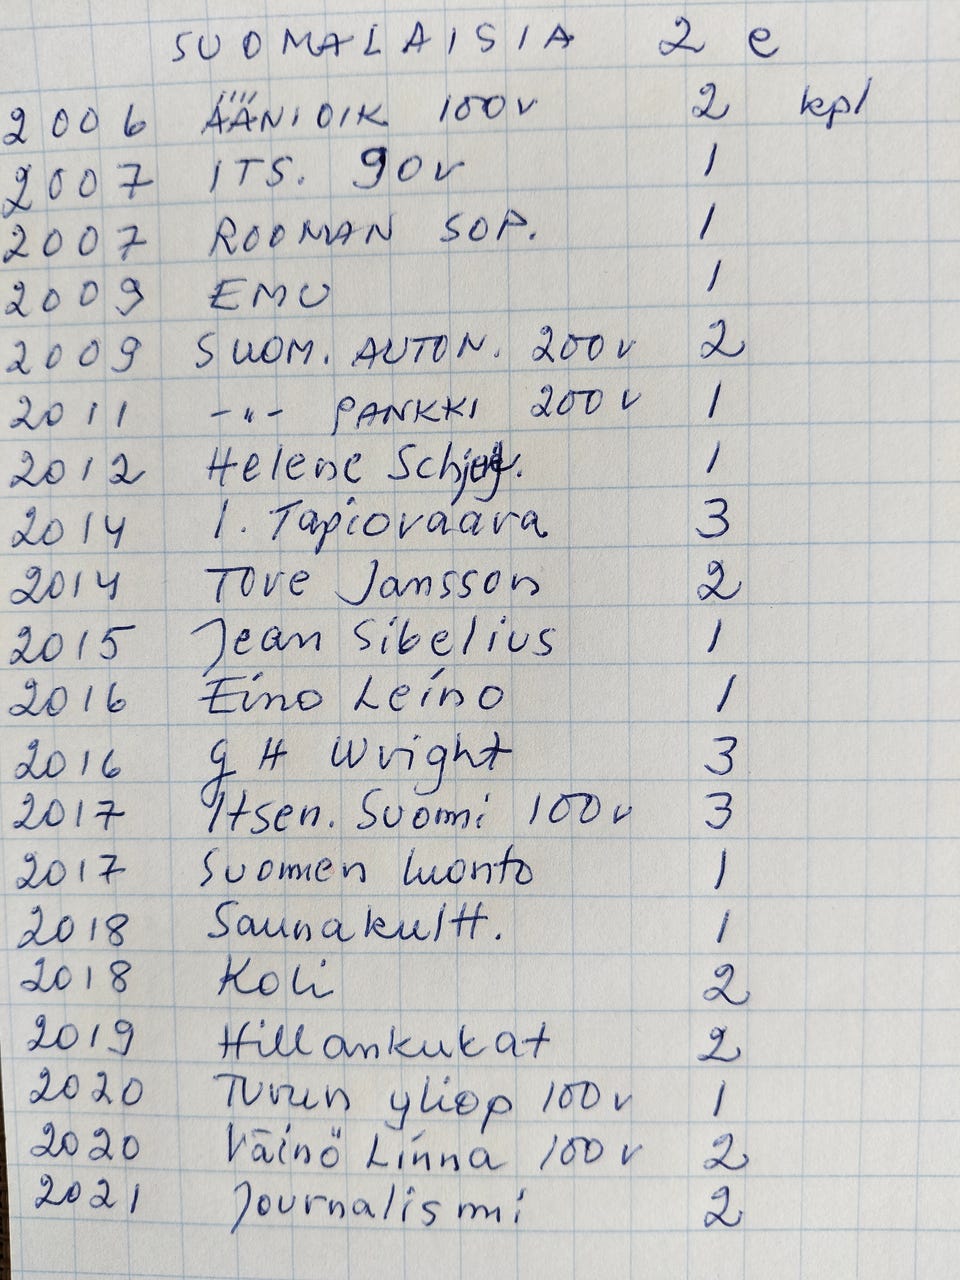 SUOMALAISIA 2 e
2006 ÄÄNIOIK 100v 2 kpl
2007 ITS. 90v 1
2007 ROOMAN SOP. 1
2009 EMU 1
2009 SUOM. AUTON. 200v 2
2011 -"- PANKKI 200v 1
2012 Helene Schjerf. 1
2014 I. Tapiovaara 3
2014 Tove Jansson 2
2015 Jean Sibelius 1
2016 Eino Leino 1
2016 G H Wright 3
2017 Itsen. Suomi 100v 3
2017 Suomen luonto 1
2018 Saunakultt. 1
2018 Koli 2
2019 Hillankukat 2
2020 Turun yliop 100v 1
2020 Väinö Linna 100v 2
2021 Journalismi 2